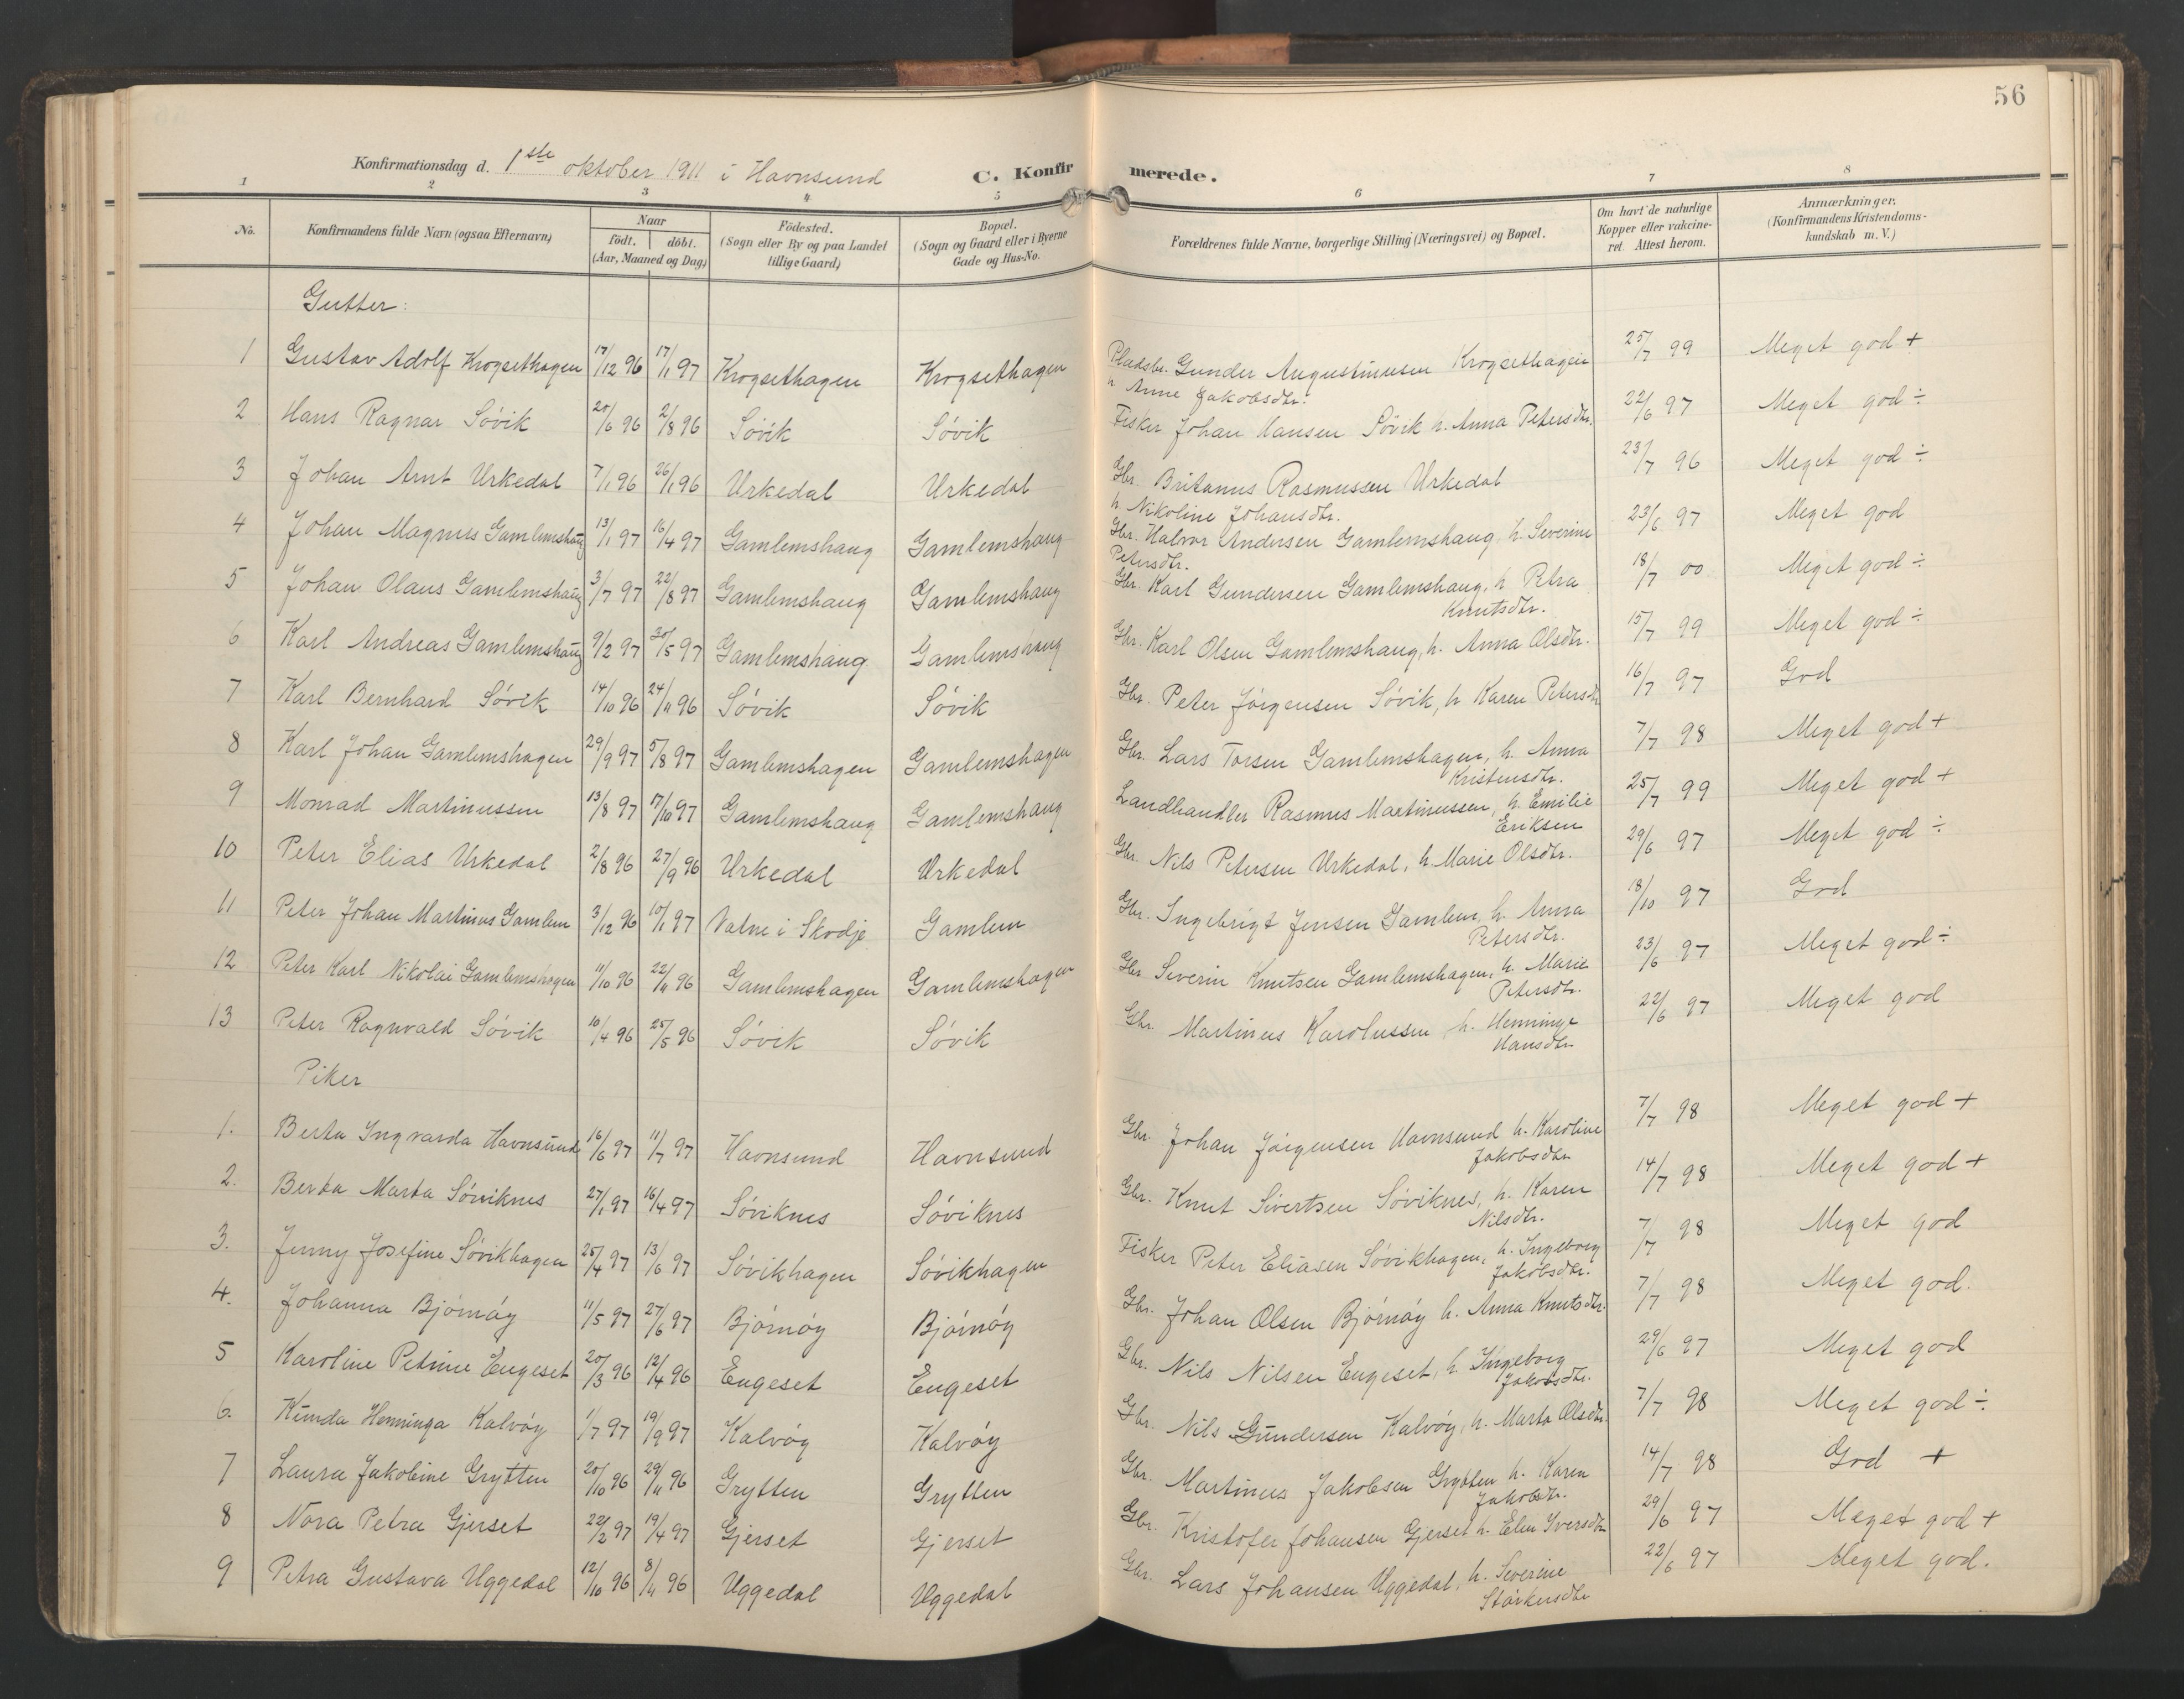 56
Konfirmationsdag d. 1ste oktober 1911 i Havnsund C. Konfirmerede.
1 2 3 4 5 6 7 8
No. Konfirmandens fulde Navn (ogsaa Efternavn) Naar födt. döbt. (Aar, Maaned og Dag) Födested. (Sogn eller By og paa Landet tillige Gaard) Bopæl. (Sogn og Gaard eller i Byerne Gade og Hus-No. Forældrenes fulde Navne, borgerlige Stilling (Næringsvei) og Bopæl. Om havt de naturlige Kopper eller vakcineret. Attest herom. Anmærkninger. (Konfirmandens Kristendomskundskab m. V.)
Gutter:
1 Gustav Adolf Krogsethagen 17/12 96 17/1 97 Krogsethagen Krogsethagen Pladsbr. Gunder Augustinusen Krogsethagen h. Anne Jakobsdtr. 25/7 99 Meget god +
2 Hans Ragnar Søvik 20/6 96 2/8 96 Søvik Søvik Fisker Johan Hansen Søvik h. Anna Petersdtr. 22/6 97 Meget god ÷
3 Johan Arnt Urkedal 7/1 96 26/1 96 Urkedal Urkedal Gbr. Britanus Rasmussen Urkedal h. Nikoline Johansdtr. 23/7 96 Meget god ÷
4 Johan Magnus Gamlemshaug 13/1 97 16/4 97 Gamlemshaug Gamlemshaug Gbr. Halvor Andersen Gamlemshaug, h. Severine Petersdtr. 23/6 97 Meget god
5 Johan Olaus Gamlemshaug 3/7 97 22/8 97 Gamlemshaug Gamlemshaug Gbr. Karl Gundersen Gamlemshaug, h. Petra Knutsdtr. 18/7 00 Meget god ÷
6 Karl Andreas Gamlemshaug 9/2 97 30/5 97 Gamlemshaug Gamlemshaug Gbr. Karl Olsen Gamlemshaug, h. Anna Olsdtr. 15/7 99 Meget god ÷
7 Karl Bernhard Søvik 14/10 96 24/11 96 Søvik Søvik Gbr. Peter Jörgensen Søvik, h Karen Petersdtr 16/7 97 God
8 Karl Johan Gamlemshagen 29/9 97 5/8 97 Gamlemshagen Gamlemshagen Gbr. Lars Torsen Gamlemshagen, h. Anna Kristensdtr. 7/7 98 Meget god +
9 Monrad Martinussen 13/8 97 17/10 97 Gamlemshaug Gamlemshaug Landhandler Rasmus Martinussen, h. Emilie Eriksen 25/7 99 Meget god +
10 Peter Elias Urkedal 2/8 96 27/9 96 Urkedal Urkedal Gbr. Nils Petersen Urkedal, h. Marie Olsdtr. 29/6 97 Meget god ÷
11 Peter Johan Martinus Gamlem 3/12 96 10/1 97 Valne i Skodje Gamlem Gbr. Ingebrigt Jensen Gamlem, h. Anna Petersdtr. 18/10 97 God
12 Peter Karl Nikolai Gamlemshagen 11/10 96 22/11 96 Gamlemshagen Gamlemshagen Gbr Severin Knutsen Gamlemshagen, h. Marie Petersdtr. 23/6 97 Meget god ÷
13 Peter Ragnvald Søvik 10/4 96 25/5 96 Søvik Søvik Gbr. Martinus Karolussen h. Henninge Hansdtr 22/6 97 Meget god
Piker
1. Berta Ingvarda Havnsund 16/6 97 11/7 97 Havnsund Havnsund Gbr. Johan Jörgensen Havnsund h. Karoline Jakobsdtr 7/7 98 Meget god +
2. Berta Marta Søviknes 27/1 97 16/4 97 Søviknes Søviknes Gbr. Knut Sivertsen Søviknes, h. Karen Nilsdtr. 14/7 98 Meget god +
3. Jenny Josefine Søvikhagen 25/4 97 13/6 97 Søvikhagen Søvikhagen Fisker Peter Eliasen Søvikhagen, h. Ingeborg Jakobsdtr. 7/7 98 Meget god
4. Johanna Bjørnøy 11/5 97 27/6 97 Bjørnøy Bjørnøy Gbr. Johan Olsen Bjørnøy h. Anna Knutsdtr. 7/7 98 Meget god.
5 Karoline Petrine Engeset 20/3 96 12/4 96 Engeset Engeset Gbr. Nils Nilsen Engeset, h. Ingeborg Jakobsdtr. 29/6 97 Meget god
6. Kunda Henninga Kalvøy 1/7 97 19/9 97 Kalvøy Kalvøy Gbr. Nils Gundersen Kalvøy, h. Marta Olsdtr. 7/7 98 Meget god ÷
7 Laura Jakobine Grytten 20/10 96 29/11 96 Grytten Grytten Gbr. Martinus Jakobsen Grytten h. Karen Jakobsdtr. 14/7 98 God +
8 Nora Petra Gjerset 22/2 97 19/4 97 Gjerset Gjerset Gbr. Kristofer Johansen Gjerset h. Elen Iversdtr 29/6 97 Meget god +
9 Petra Gustava Uggedal 12/10 96 8/11 96 Uggedal Uggedal Gbr. Lars Johansen Uggedal, h. Severine Størkersdtr 22/6 97 Meget god.